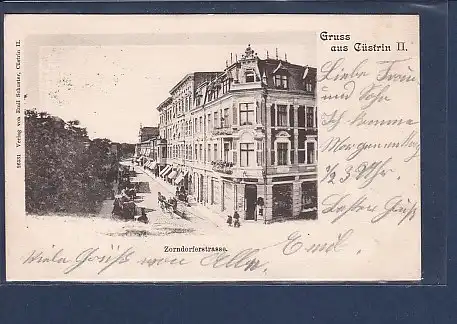 Gruss
aus Cüstrin II.
Liebe Frau
und Sohn
Ich komme
Morgen
1/2 3 Uhr.
Besten Gruß
Emil.
Zorndorferstrasse.
Viele Grüße von Alle
16531 Verlag von Emil Schuster, Cüstrin II.